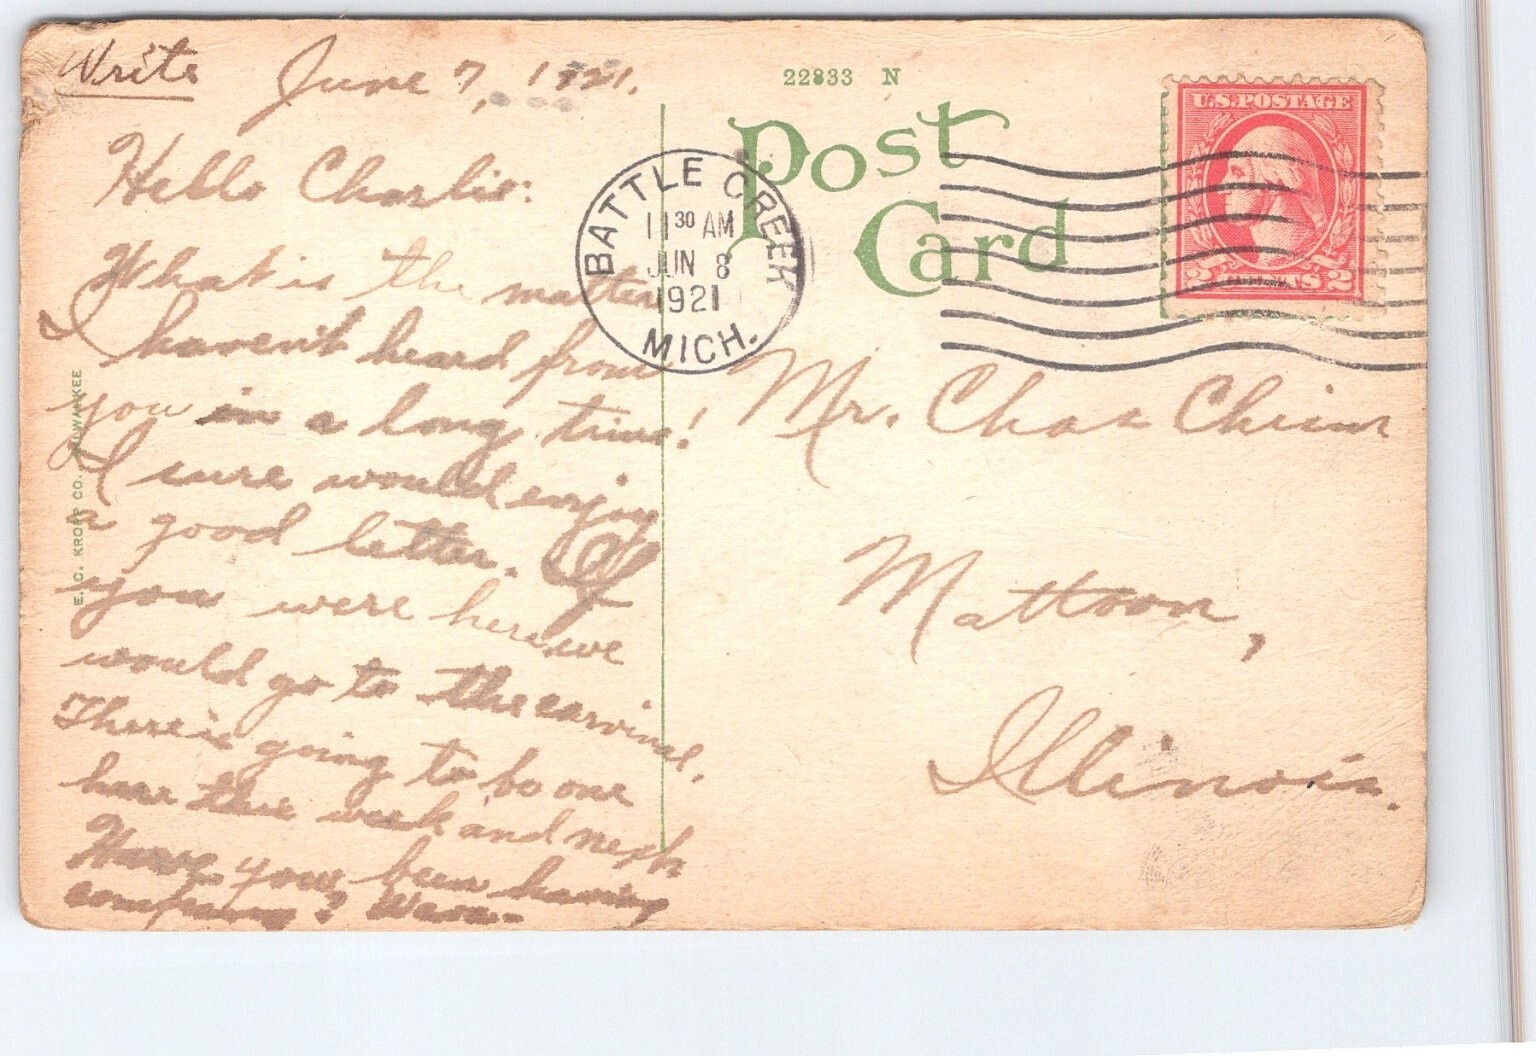 Write
June 7, 1921.
Hello Charlie:
What is the matter
I haven't heard from
you in a long time!
I sure would enjoy
a good letter. If
you were here we
would go to the carvinal.
There is going to be one
here this week and next
Have you been having
company?
22833 N
Post
Card
U.S. POSTAGE
2 CENTS 2
BATTLE CREEK
11 30 AM
JUN 8
1921
MICH.
Mr. Chas
Mattoon,
Illinois.
E. C. KROPP CO. MILWAUKEE